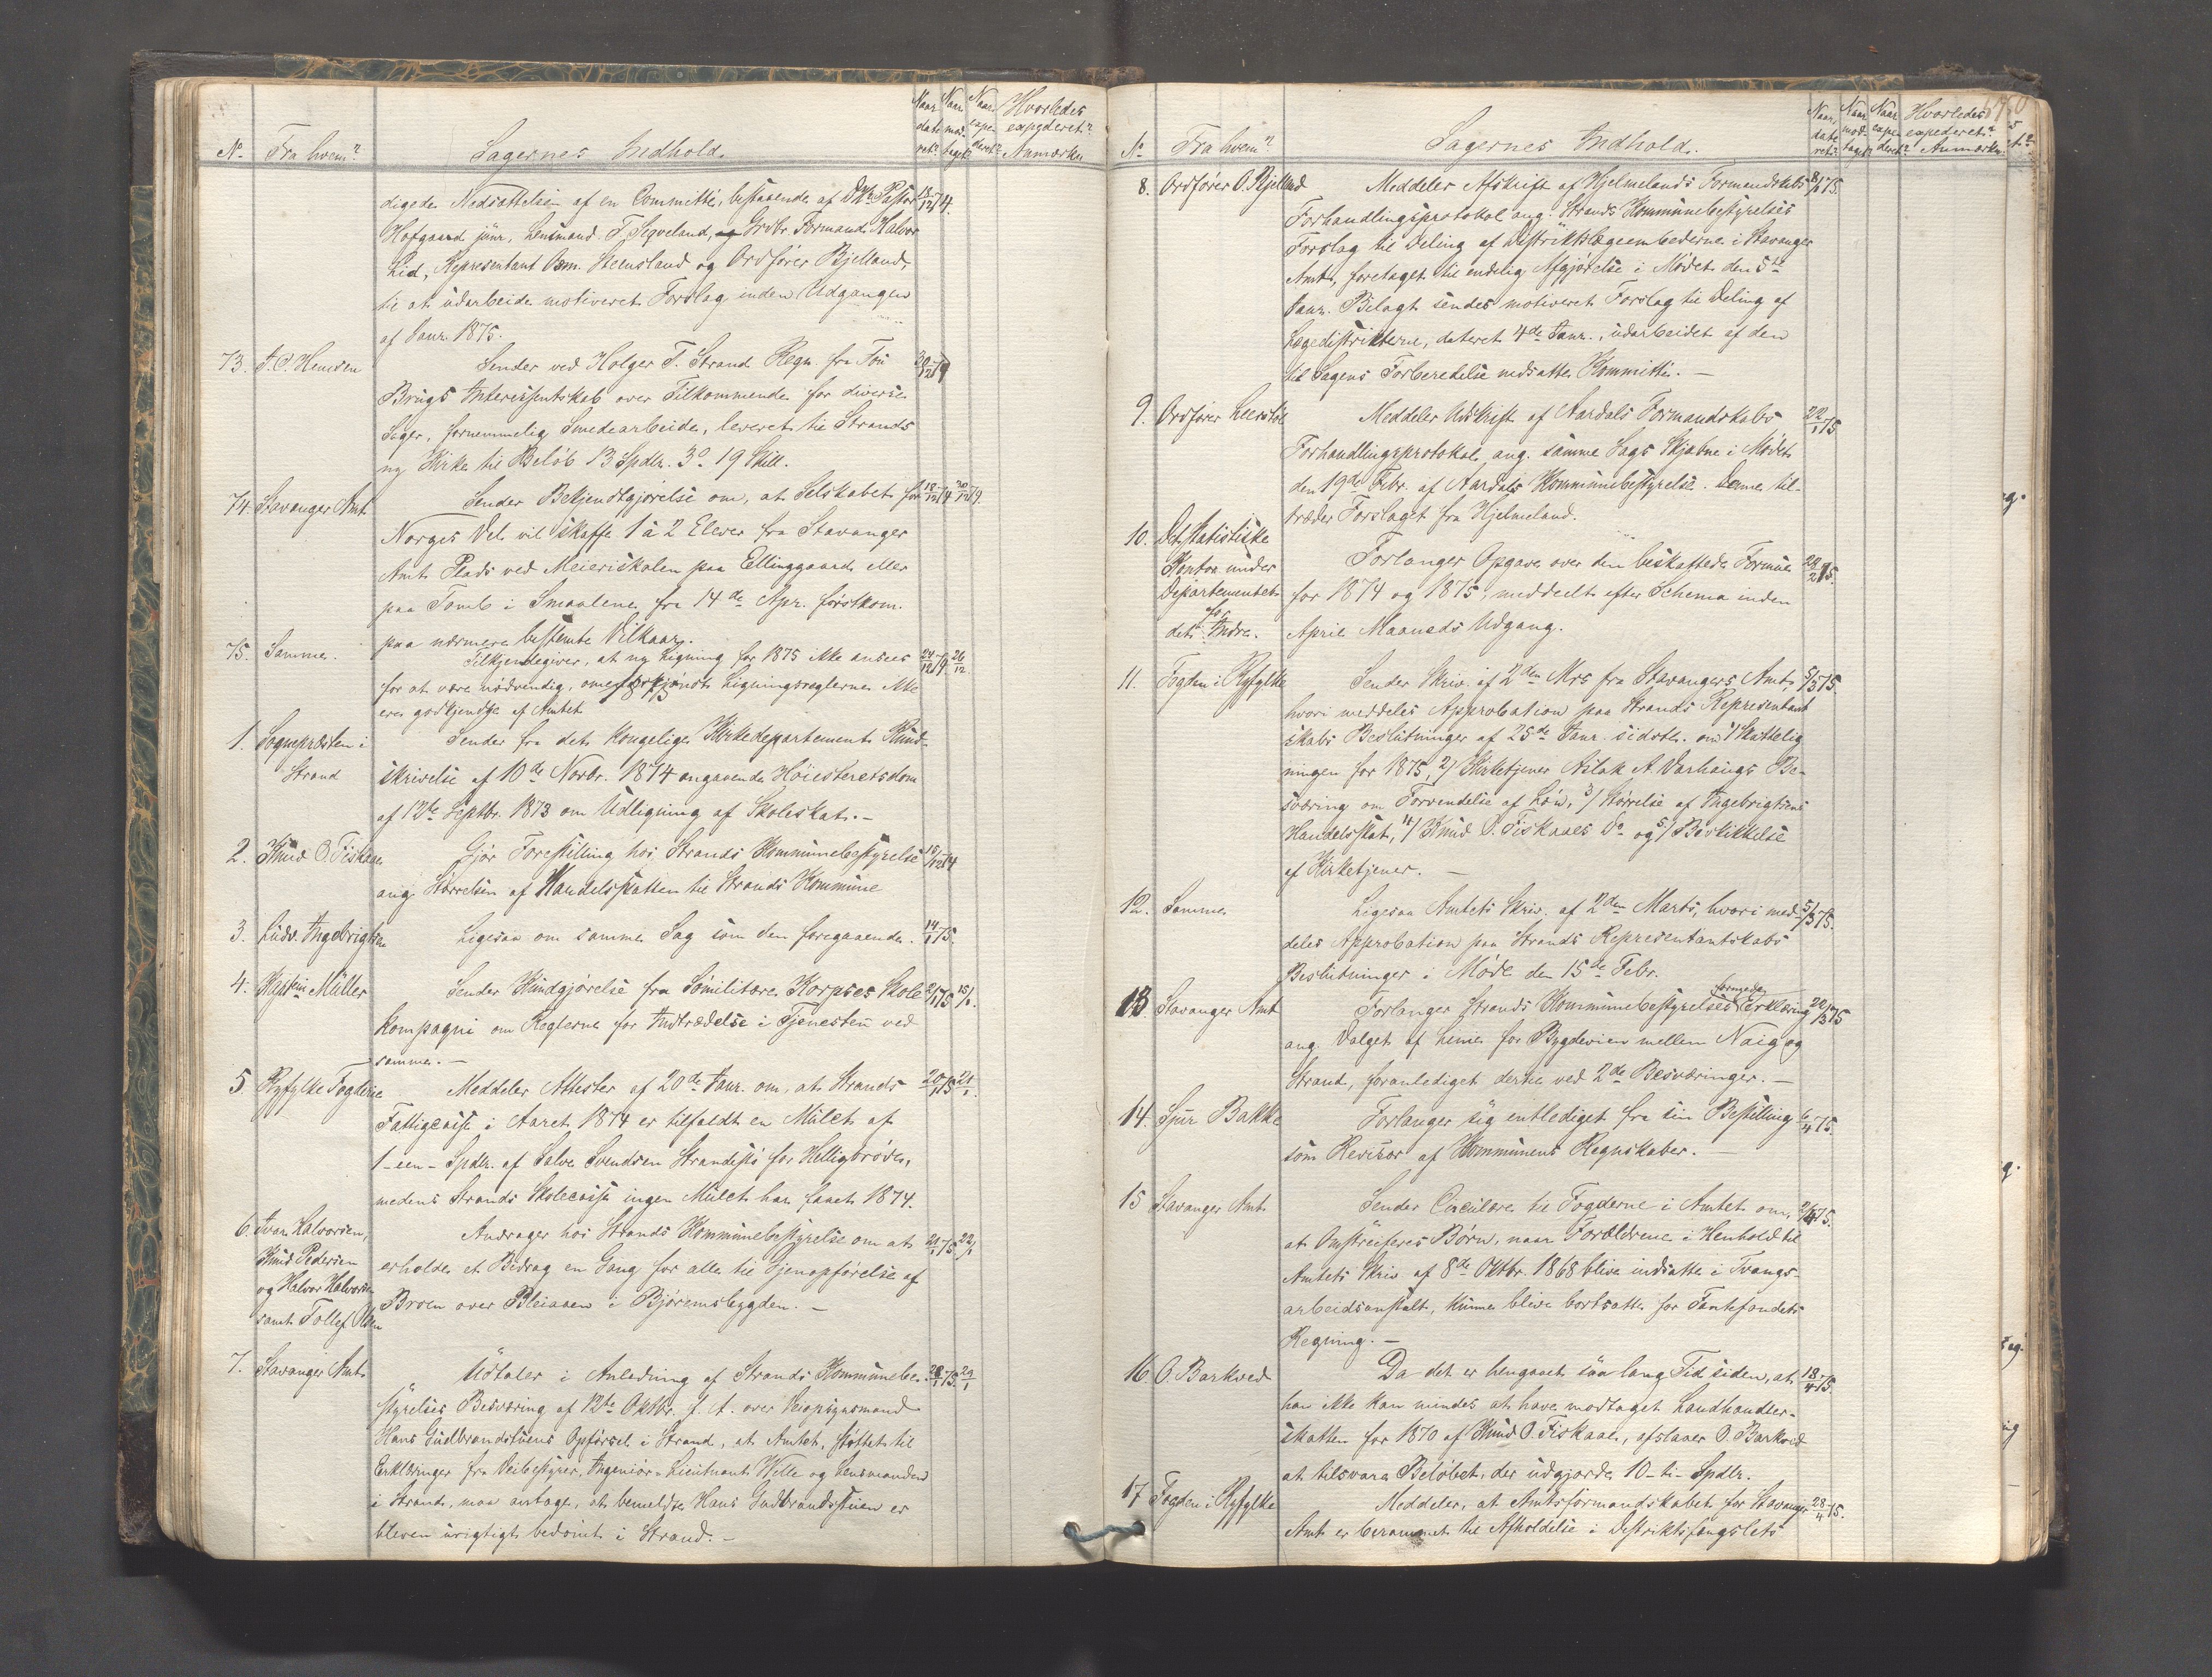 No. Fra hvem? Sagernes Indhold. Naar dateret? Naar modtaget? Naar expederet? Hvorledes expederet? Anmærkn.
digede Nedsættelsen af en Committé, bestaaende af DHr. Pastor 18/12 74.
Hofgaard junr, Lensmand T. Segveland, og Grdbr. Formand Halvor
Lid, Repræsentant Osm. Heensland og Ordfører Bjelland,
til at udarbeide motiveret Forslag inden Udgangen
af Janr. 1875.
73. Sender ved Holger T. Strand Regn. fra Tou 30/12 74
Brugs Interessentskab over Tilkommende for diverse
Sager, fornemmelig Smedearbeide, leveret til Strands
ny Kirke til Beløb 13 Spdlr. 3o 19 Skill.
74. Stavanger Amt Sender Bekjendtgjørelse om, at Selskabet for 18/12 74
Norges Vel vil skaffe 1 à 2 Elever fra Stavanger
Amt Plads ved Meieriskolen paa Ellinggaard eller
paa Tomb i Smaalene fra 14de Apr. førstkom.
paa nærmere bestemte Vilkaar.
75. Samme. Tilkjendegiver, at ny Ligning for 1875 ikke ansees 24/12 74 26/12.
for at være nødvendig, Ligningsreglerne ikke
ere godkjendte af Amtet
1. Sognepræsten i Sender fra det kongelige Kirkedepartement Rund-
Strand skrivelse af 10de Novbr. 1874 angaaende Høiesteretsdom
af 12te Septbr. 1873 om Udligning af Skoleskat. -
2. Knud O. Fiskaae Gjør Forestilling hos Strands Kommunebestyrelse 15/12 74
ang. Størrelsen af Handelsskatten til Strands Kommune
3. Ludv. Ingebrigtsen Ligesaa om samme Sag som den foregaaende. 14/1 75.
4. Kaptein Müller Sender Kundgjørelse fra Sømilitære Korpses Skole 2/1 75 15/1.
kompagni om Reglerne for Indtrædelse i Tjenesten ved
samme. -
5 Ryfylke Fogderie Meddeler Attester af 20de Janr. om, at Strands 20/1 75 21/1.
Fattigcasse i Aaret 1874 er tilfaldt en Mulct af
1 - een - Spdlr. af Salve Svendsen Strandesjø for Helligbrøde,
medens Strands Skolecasse ingen Mulct har faaet 1874.
6. Ivar Halvorsen, Andrager hos Strands Kommunebestyrelse om at 21/1 75 22/1
Knud Pedersen erholde et Bidrag en Gang for alle til Gjenopførelse af
og Halvor Halvorsen Broen over Bleiaaen i Bjøremsbygden. -
samt Tollef Olsen
7. Stavanger Amt Udtaler i Anledning af Strands Kommunebe- 28/1 75 29/1
styrelses Besværing af 12te Oktbr. f. A. over Veiopsynsmand
Hans Gudbrandstuens Opførsel i Strand, at Amtet, støttet til
Erklæringer fra Veibestyrer, Ingeniør-Lieutnant Wille og Lensmanden
i Strand, maa antage, at bemeldte Hans Gudbrandsstuen er
bleven urigtigt bedømt i Strand. -
No. Fra hvem? Sagernes Indhold. Naar dateret? Naar modtaget? Naar expederet? Hvorledes expederet? Anmærkn.
8. Ordfører O. Bjelland Meddeler Afskrift af Hjelmelands Formandskabs 8/1 75.
Forhandlingsprotokol ang. Strands Kommunebestyrelses
Forslag til Deling af Distriktslægeembederne i Stavanger
Amt, foretaget til endelig Afgjørelse i Mødet den 5te
Janr. Bilagt sendes motiveret Forslag til Deling af
Lægedistrikterne, dateret 4de Janr., udarbeidet af den
til Sagens Forberedelse nedsatte Kommitté. -
9. Ordfører Meddeler Udskrift af Aardals Formandskabs 22/1 75
Forhandlingsprotokol ang. samme Sags Skjæbne i Mødet
den 19de Febr. af Aardals Kommunebestyrelse. Denne til-
træder Forslaget fra Hjelmeland.
10. Det statistiske
Kontor under Forlanger Opgave over den beskattede Formue 24/2 75.
Departementet for 1874 og 1875, meddeelt efter Schema inden
for det Indre. April Maaneds Udgang.
11. Fogden i Ryfylke Sender Skriv. af 2den Mrs fra Stavangers Amt, 5/3 75.
hvori meddeles Approbation paa Strands Repræsentant
skabs Beslutninger af 25de Janr. sidstl. om 1/ Skattelig
ningen for 1875, 2/ Kirketjener Aslak A. Varhaugs Be-
sværing om Forvendelse af Løn, 3/ Størrelse af Ingebrigtsens
Handelsskat, 4/ Knud O. Fiskaaes Do og 5/ Beskikkelse
af Kirketjener. -
12. Samme Ligesaa Amtets Skriv. af 2den Marts, hvori med- 5/3 75.
deles Approbation paa Strands Repræsentantskabs
Beslutninger i Møde den 15de Febr.
13 Stavanger Amt Forlanger Strands Kommunebestyrelses fornyede Erklæring 22/3 75
ang. Valget af Linie for Bygdeveien mellem Naig og
Strand, foranlediget dertil ved 2de Besværinger. -
14. Sjur Bakke Forlanger sig entlediget fra sin Bestilling 6/4 75.
som Revisor af Kommunens Regnskaber. -
15 Stavanger Amt. Sender Circulære til Fogderne i Amtet om, 2/4 75.
at Omstreiferes Børn, naar Forældrene i Henhold til
Amtets Skriv. af 8de Oktbr. 1868 blive indsatte i Tvangs-
arbeidsanstalt, kunne blive bortsatte for Fantefondets
Regning. -
16. O. Barkved Da det er hengaaet saa lang Tid siden, at 18/4 75.
han ikke kan mindes at have modtaget Landhandler-
skatten for 1870 af Knud O. Fiskaae, afslaaer O. Barkved
at tilsvare Beløbet, der udgjorde 10 - ti - Spdlr.
17 Fogden i Ryfylke Meddeler, at Amtsformandskabet for Stavanger 28/4 75.
Amt er berammet til Afholdelse i Distriktsfængslets